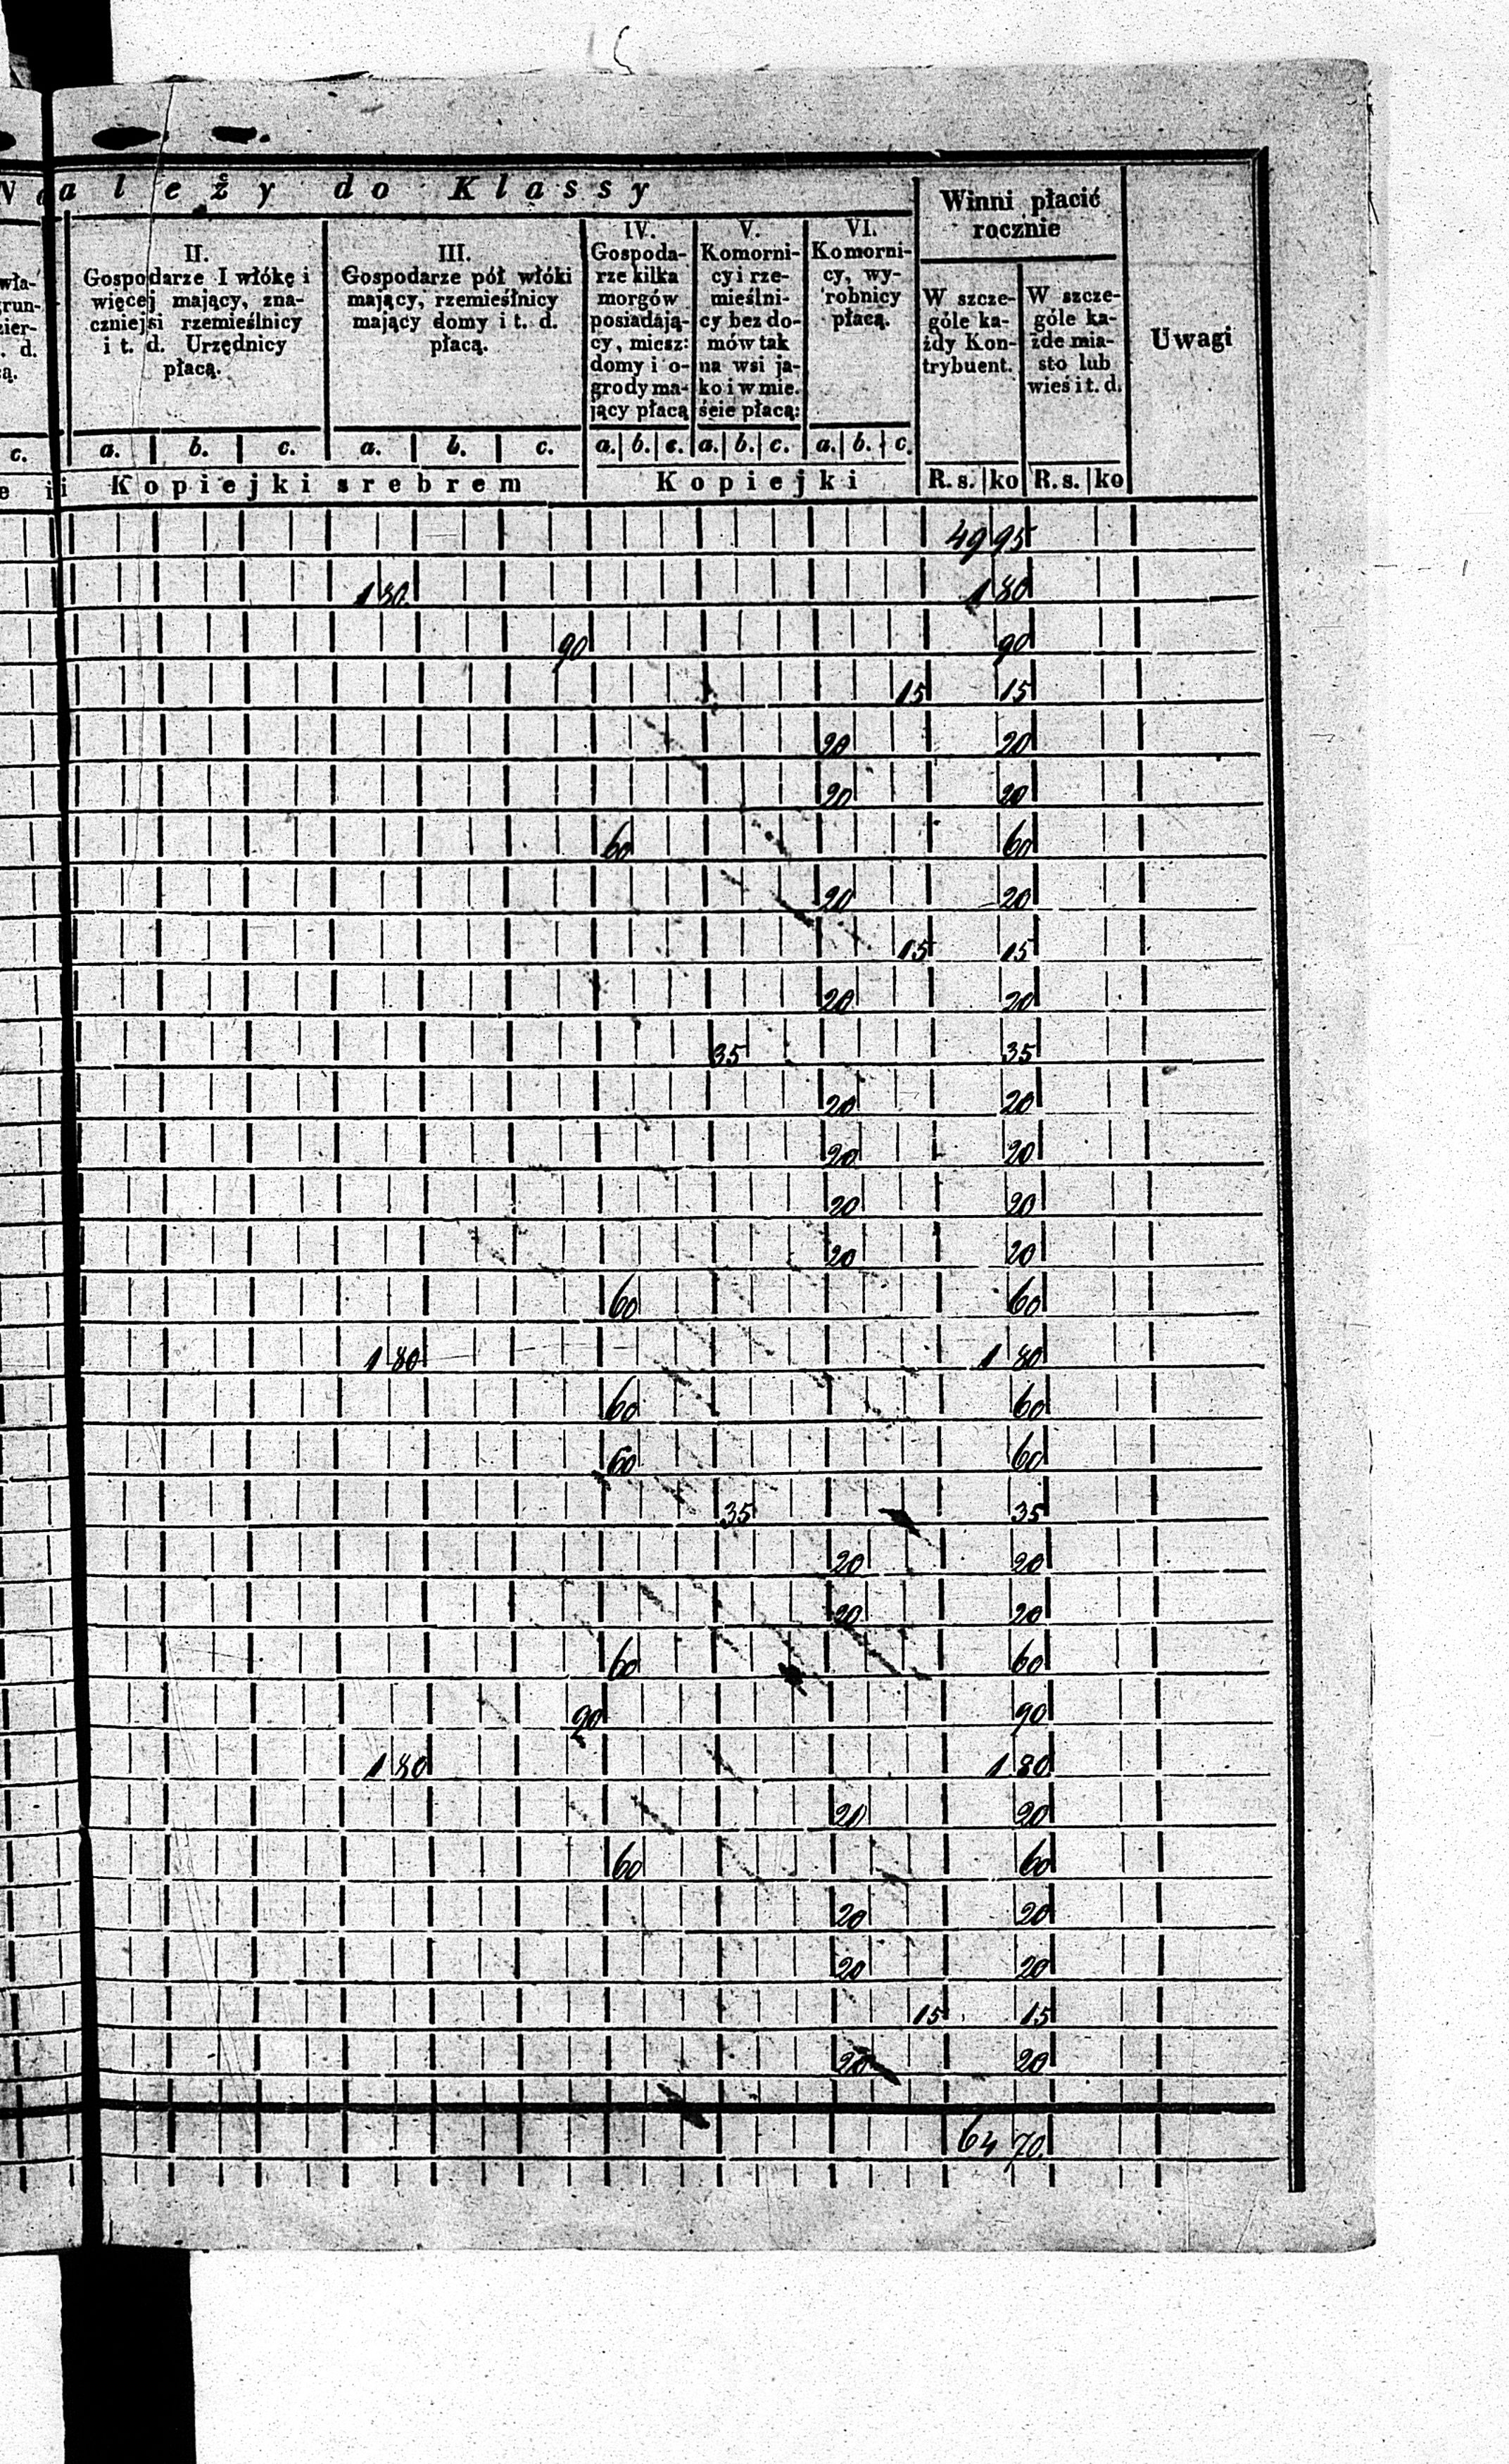 Należy do Klassy
Winni płacić
rocznie
Uwagi
II.
Gospodarze I włókę i
więcej mający, zna-
czniejsi rzemieślnicy
i t. d. Urzędnicy
płacą.
III.
Gospodarze pół włóki
mający, rzemieślnicy
mający domy i t. d.
płacą.
IV.
Gospoda-
rze kilka
morgów
posiadają-
cy, miesz:
domy i o-
grody ma-
jący płacą
V.
Komorni-
cy i rze-
mieślni-
cy bez do-
mów tak
na wsi ja-
ko i w mie.
ście płacą:
VI.
Komorni-
cy, wy-
robnicy
płacą.
W szcze-
góle ka-
żdy Kon-
trybuent.
W szcze-
góle ka-
żde mia-
sto lub
wieś i t. d.
wła-
grun-
zier-
. d.
cą.
c. a. b. c. a. b. c. a. b. c. a. b. c. a. b. c.
Kopiejki srebrem Kopiejki R. s. ko R. s. ko
49 95
1 80 1 80
90 90
15 15
20 20
20 20
60 60
20 20
15 15
20 20
35 35
20 20
20 20
20 20
20 20
60 60
1 80 1 80
60 60
60 60
35 35
20 20
20 20
60 60
90 90
1 80 1 80
20 20
60 60
20 20
20 20
15 15
20 20
64 70